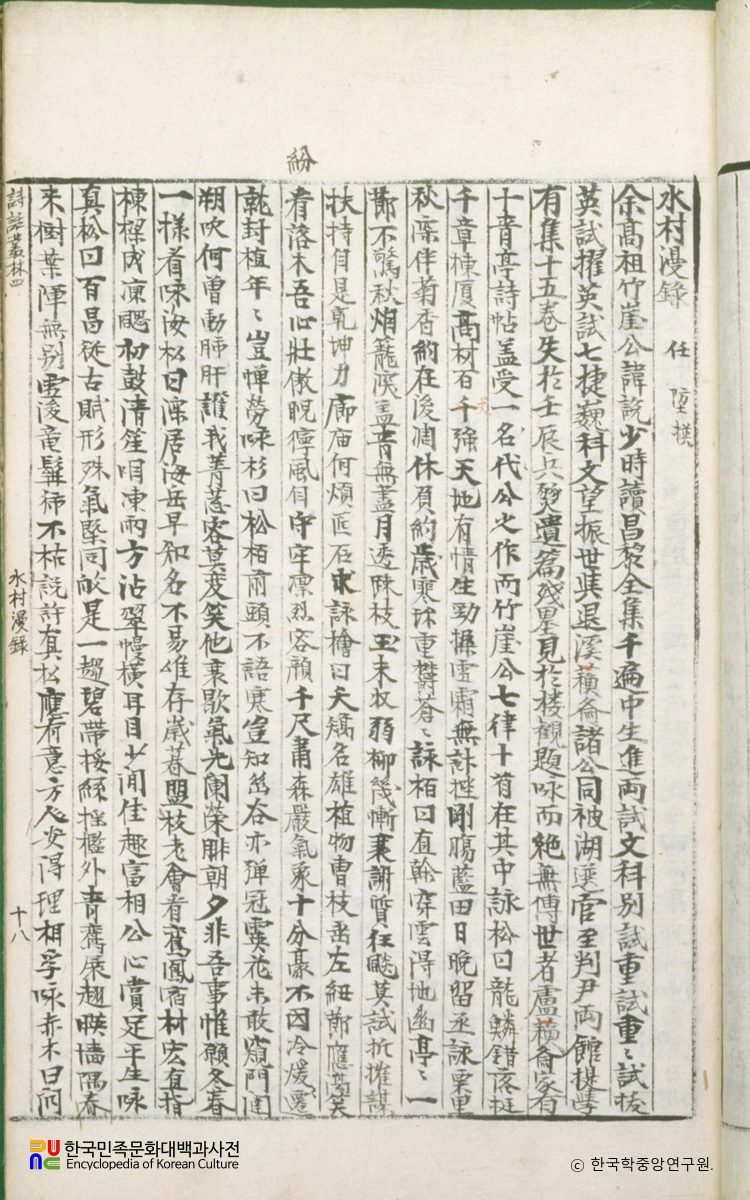 紛
水村漫錄 任埅撰
余高祖竹崖公諱說少時讀昌黎全集千遍中生進両試文科別試重試重〻試拔
英試擢英試七捷巍科文望振世與退溪蘓齋諸公同被湖選官至判尹両館提學
有集十五卷失於壬辰兵燹遺篇殘墨見於楼觀題咏而絶無傳世者盧蘓齋家有
十青亭詩帖盖受一名代公之作而竹崖公七律十首在其中詠松曰龍鱗錯落挺
千章棟厦高材百千強天地有情生勁操雪霜無計挫剛膓藍田日晩留丞詠栗里
秋深伴菊香約在後凋休負約歲寒珎重欝蒼〻詠栢曰直幹穿雲得地幽亭〻一
莭不驚秋烟籠溪盖青無盡月透踈枝玉未収弱柳幾慚衰謝質狂飈莫試折摧謀
扶持自是乾坤力廊庙何煩匠石求詠檜曰天矯名雄植物曹枝垂左紐莭應高笑
看落木吾心壯傲睨獰風自守牢凛烈客顔千尺肅森嚴氣象十分豪不因冷煖遷
乾封植年〻豈憚勞咏杉曰松栢前頭不語寒豈知幽谷亦弾冠雲花未敢窺門閫
朔吹何曽動肺肝誰我菁葱客莫変笑他衰歇氣先闌榮腓朝夕非吾事惟願冬春
一樣看咏海松曰深居海岳早知名不易惟存歲暮盟枝老會看鸞鳳宿材宏直指
棟樑成凍颸初鼓清笙咽凍雨方沾翠幔橫耳目少閒佳趣富相公心賞足平生咏
真松曰百昌從古賦形殊氣堅同㱃是一趨碧帶挼絲揺檻外青鸞展翅暎墻隅春
来樹葉渾無别雪後竜髯獨不枯説許真松應有意方心安得理相孚咏赤木曰問
詩話叢林四
水村漫錄
十八
한국민족문화대백과사전
Encyclopedia of Korean Culture
ⓒ 한국학중앙연구원.